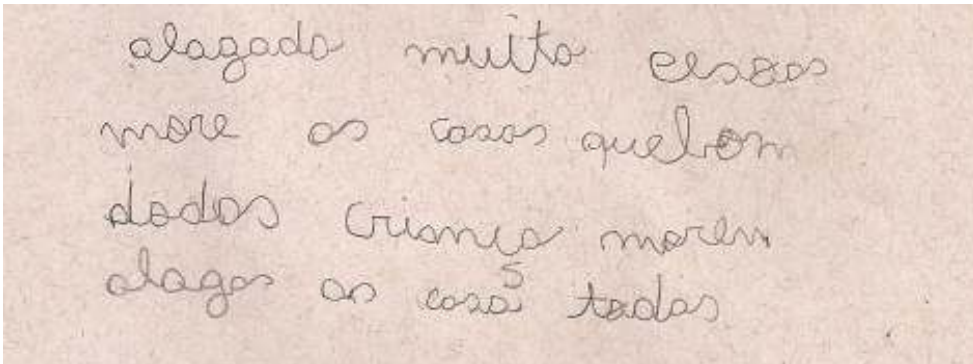 alagado muito essoas
more as casas quebom
dodos criança morem
alagas as casas todas